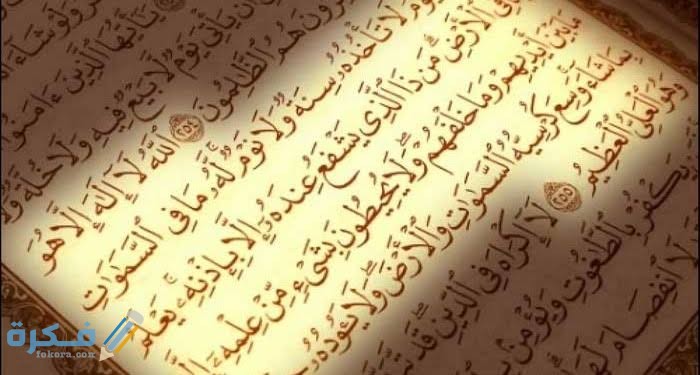 وَلَوْ شَآءَ
يَٰٓأَيُّهَا ٱلَّذِينَ ءَامَنُوٓا۟
أَن يَأْتِىَ يَوْمٌ لَّا بَيْعٌ فِيهِ وَلَا خُلَّةٌ وَلَا
هُمُ ٱلظَّٰلِمُونَ ٢٥٤ ٱللَّهُ لَآ إِلَٰهَ إِلَّا هُوَ
لَا تَأْخُذُهُۥ سِنَةٌ وَلَا نَوْمٌ لَّهُۥ مَا فِى ٱلسَّمَٰوَٰتِ
فِى ٱلْأَرْضِ مَن ذَا ٱلَّذِى يَشْفَعُ عِندَهُۥٓ إِلَّا بِإِذْنِهِۦ يَعْلَمُ
مَا بَيْنَ أَيْدِيهِمْ وَمَا خَلْفَهُمْ وَلَا يُحِيطُونَ بِشَىْءٍ مِّنْ عِلْمِهِۦٓ
بِمَا شَآءَ وَسِعَ كُرْسِيُّهُ ٱلسَّمَٰوَٰتِ وَٱلْأَرْضَ وَلَا يَـُٔودُهُۥ
وَهُوَ ٱلْعَلِىُّ ٱلْعَظِيمُ ٢٥٥ لَآ إِكْرَاهَ فِى ٱلدِّينِ قَد
يَكْفُرْ بِٱلطَّٰغُوتِ وَيُؤْمِنۢ
لَا ٱنفِصَامَ لَهَا
فكرة
fokera.com